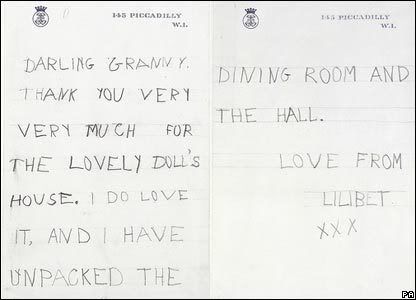 145 PICCADILLY
W.1.
DARLING GRANNY.
THANK YOU VERY
VERY MUCH FOR
THE LOVELY DOLL'S
HOUSE. I DO LOVE
IT, AND I HAVE
UNPACKED THE
145 PICCADILLY
W.1.
DINING ROOM AND
THE HALL.
LOVE FROM
LILIBET.
XXX
PA